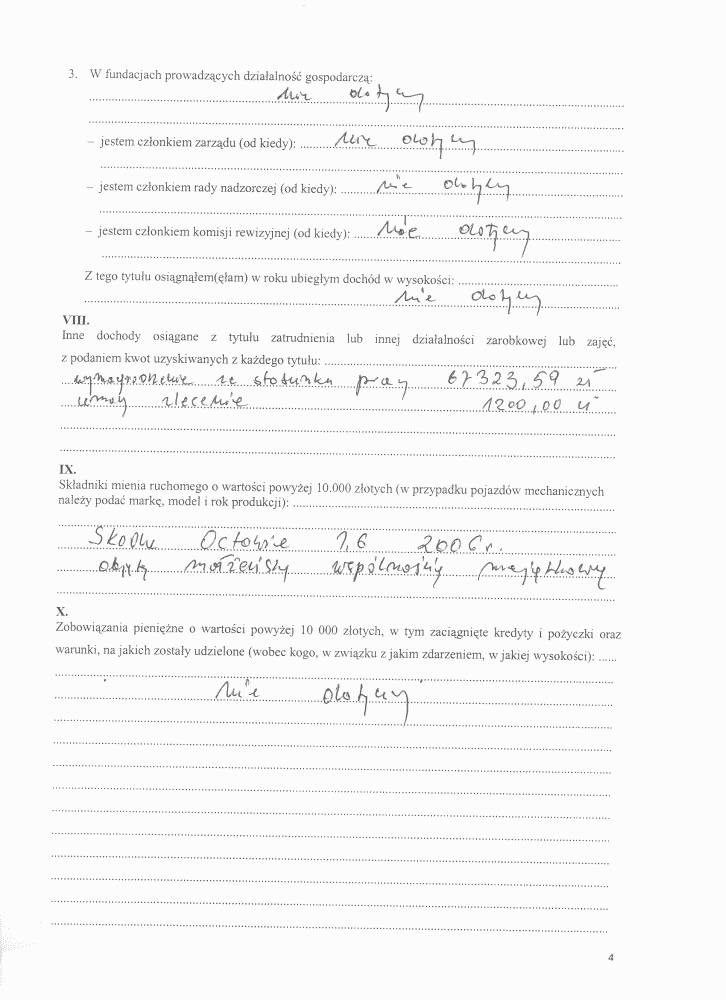 3. W fundacjach prowadzących działalność gospodarczą:
nie dotyczy
– jestem członkiem zarządu (od kiedy): nie dotyczy
– jestem członkiem rady nadzorczej (od kiedy): nie dotyczy
– jestem członkiem komisji rewizyjnej (od kiedy): nie dotyczy
Z tego tytułu osiągnąłem(ęłam) w roku ubiegłym dochód w wysokości:
nie dotyczy
VIII.
Inne dochody osiągane z tytułu zatrudnienia lub innej działalności zarobkowej lub zajęć,
z podaniem kwot uzyskiwanych z każdego tytułu:
wynagrodzenie ze stosunku pracy 67323,59 zł
umowy zlecenie 1200,00 zł
IX.
Składniki mienia ruchomego o wartości powyżej 10.000 złotych (w przypadku pojazdów mechanicznych
należy podać markę, model i rok produkcji):
Skoda Octavia 1,6 2006 r.
objęty małżeńską wspólnością majątkową
X.
Zobowiązania pieniężne o wartości powyżej 10 000 złotych, w tym zaciągnięte kredyty i pożyczki oraz
warunki, na jakich zostały udzielone (wobec kogo, w związku z jakim zdarzeniem, w jakiej wysokości):
nie dotyczy
4